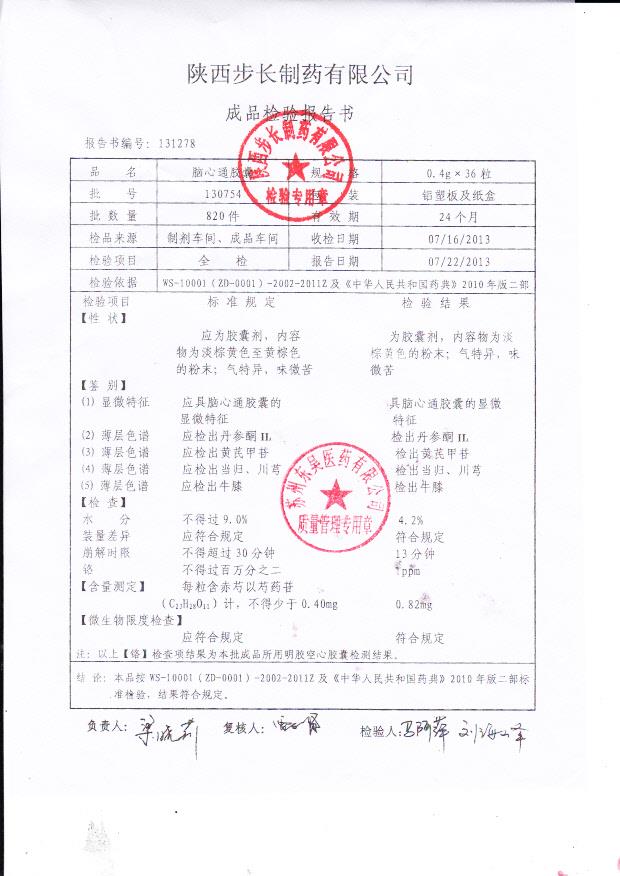 陕西步长制药有限公司
成品检验报告书
报告书编号: 131278
品 名 脑心通胶囊 规 格 0.4g×36粒
批 号 130754 包 装 铝塑板及纸盒
批 数 量 820件 有 效 期 24个月
检品来源 制剂车间、成品车间 收检日期 07/16/2013
检验项目 全 检 报告日期 07/22/2013
检验依据 WS-10001 (ZD-0001)-2002-2011Z及《中华人民共和国药典》2010年版二部
检验项目 标 准 规 定 检 验 结 果
【性 状】
应为胶囊剂,内容 为胶囊剂,内容物为淡
物为淡棕黄色至黄棕色 棕黄色的粉末;气特异,味
的粉末;气特异,味微苦 微苦
【鉴 别】
(1) 显微特征 应具脑心通胶囊的 具脑心通胶囊的显微
显微特征 特征
(2) 薄层色谱 应检出丹参酮IIA 检出丹参酮IIA
(3) 薄层色谱 应检出黄芪甲苷 检出黄芪甲苷
(4) 薄层色谱 应检出当归、川芎 检出当归、川芎
(5) 薄层色谱 应检出牛膝 检出牛膝
【检 查】
水 分 不得过9.0% 4.2%
装量差异 应符合规定 符合规定
崩解时限 不得超过30分钟 13分钟
铬 不得过百万分之二 1ppm
【含量测定】 每粒含赤芍以芍药苷
(C23H28O11)计,不得少于0.40mg 0.82mg
【微生物限度检查】
应符合规定 符合规定
注:以上【铬】检查项结果为本批成品所用明胶空心胶囊检测结果。
结 论:本品按WS-10001 (ZD-0001)-2002-2011Z及《中华人民共和国药典》2010年版二部标
准检验,结果符合规定。
负责人: 复核人: 检验人:
陕西步长制药有限公司
检验专用章
苏州东吴医药有限公司
质量管理专用章